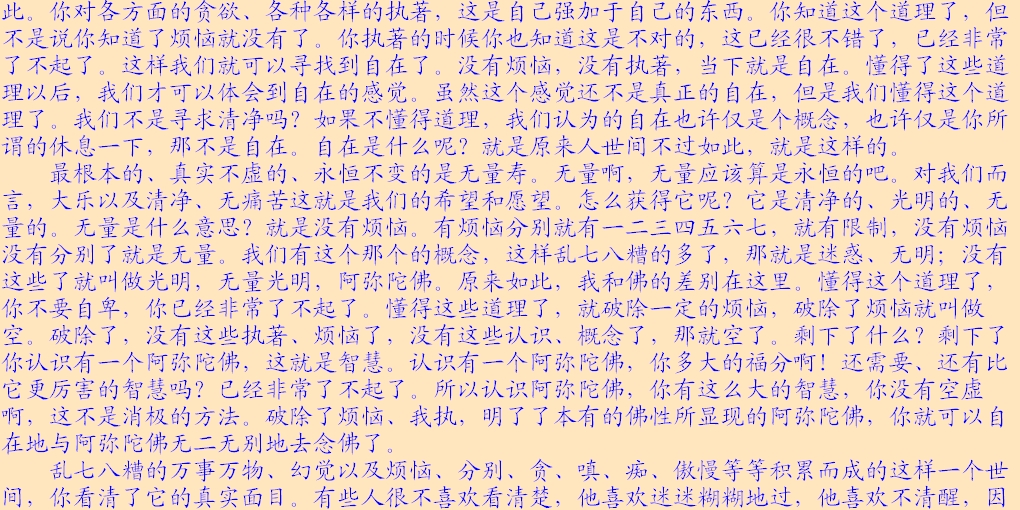 此。你对各方面的贪欲、各种各样的执著，这是自己强加于自己的东西。你知道这个道理了，但
不是说你知道了烦恼就没有了。你执著的时候你也知道这是不对的，这已经很不错了，已经非常
了不起了。这样我们就可以寻找到自在了。没有烦恼，没有执著，当下就是自在。懂得了这些道
理以后，我们才可以体会到自在的感觉。虽然这个感觉还不是真正的自在，但是我们懂得这个道
理了。我们不是寻求清净吗？如果不懂得道理，我们认为的自在也许仅是个概念，也许仅是你所
谓的休息一下，那不是自在。自在是什么呢？就是原来人世间不过如此，就是这样的。
最根本的、真实不虚的、永恒不变的是无量寿。无量啊，无量应该算是永恒的吧。对我们而
言，大乐以及清净、无痛苦这就是我们的希望和愿望。怎么获得它呢？它是清净的、光明的、无
量的。无量是什么意思？就是没有烦恼。有烦恼分别就有一二三四五六七，就有限制，没有烦恼
没有分别了就是无量。我们有这个那个的概念，这样乱七八糟的多了，那就是迷惑、无明；没有
这些了就叫做光明，无量光明，阿弥陀佛。原来如此，我和佛的差别在这里。懂得这个道理了，
你不要自卑，你已经非常了不起了。懂得这些道理了，就破除一定的烦恼，破除了烦恼就叫做
空。破除了，没有这些执著、烦恼了，没有这些认识、概念了，那就空了。剩下了什么？剩下了
你认识有一个阿弥陀佛，这就是智慧。认识有一个阿弥陀佛，你多大的福分啊！还需要、还有比
它更厉害的智慧吗？已经非常了不起了。所以认识阿弥陀佛，你有这么大的智慧，你没有空虚
啊，这不是消极的方法。破除了烦恼、我执，明了了本有的佛性所显现的阿弥陀佛，你就可以自
在地与阿弥陀佛无二无别地去念佛了。
乱七八糟的万事万物、幻觉以及烦恼、分别、贪、嗔、痴、傲慢等等积累而成的这样一个世
间，你看清了它的真实面目。有些人很不喜欢看清楚，他喜欢迷迷糊糊地过，他喜欢不清醒，因